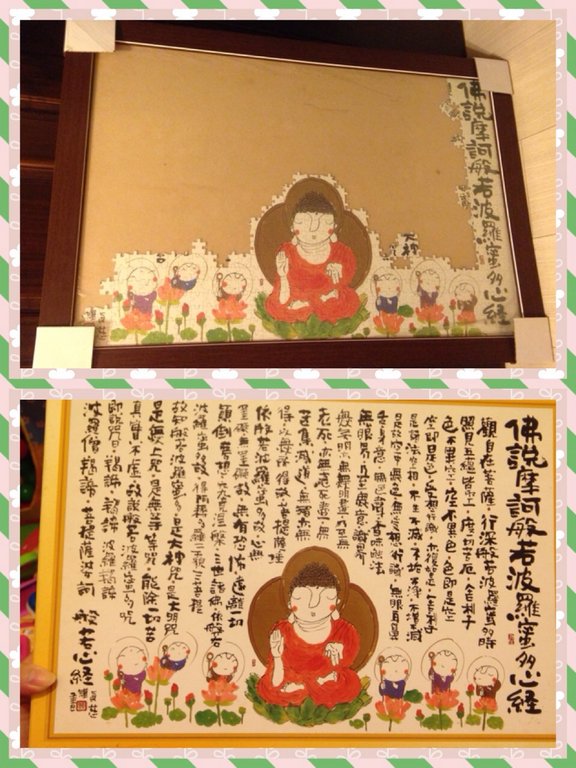 佛説摩訶般若波羅蜜多心経
大神
佛説摩訶般若波羅蜜多心経
觀自在菩薩・行深般若波羅蜜多時
照見五蘊皆空・度一切苦厄・舍利子
色不異空・空不異色・色即是空
空即是色・受想行識・亦復如是・舍利子
是諸法空相・不生不滅・不垢不淨・不增不減
是故空中・無色・無受想行識・無眼耳鼻
舌身意・無色聲香味觸法
無眼界・乃至無意識界
無無明・亦無無明盡・乃至無
老死・亦無老死盡・無
苦集滅道・無智亦無
得・以無所得故・菩提薩埵
依般若波羅蜜多故・心無
罣礙無罣礙故・無有恐怖遠離一切
顛倒夢想・究竟涅槃・三世諸佛・依般若
波羅蜜多故・得阿耨多羅三藐三菩提
故知般若波羅蜜多・是大神咒・是大明咒
是無上咒・是無等等咒・能除一切苦
真實不虛・故說般若波羅蜜多咒
即說咒曰・揭諦・揭諦・波羅揭諦
波羅僧・揭諦・菩提薩婆訶 般若心経